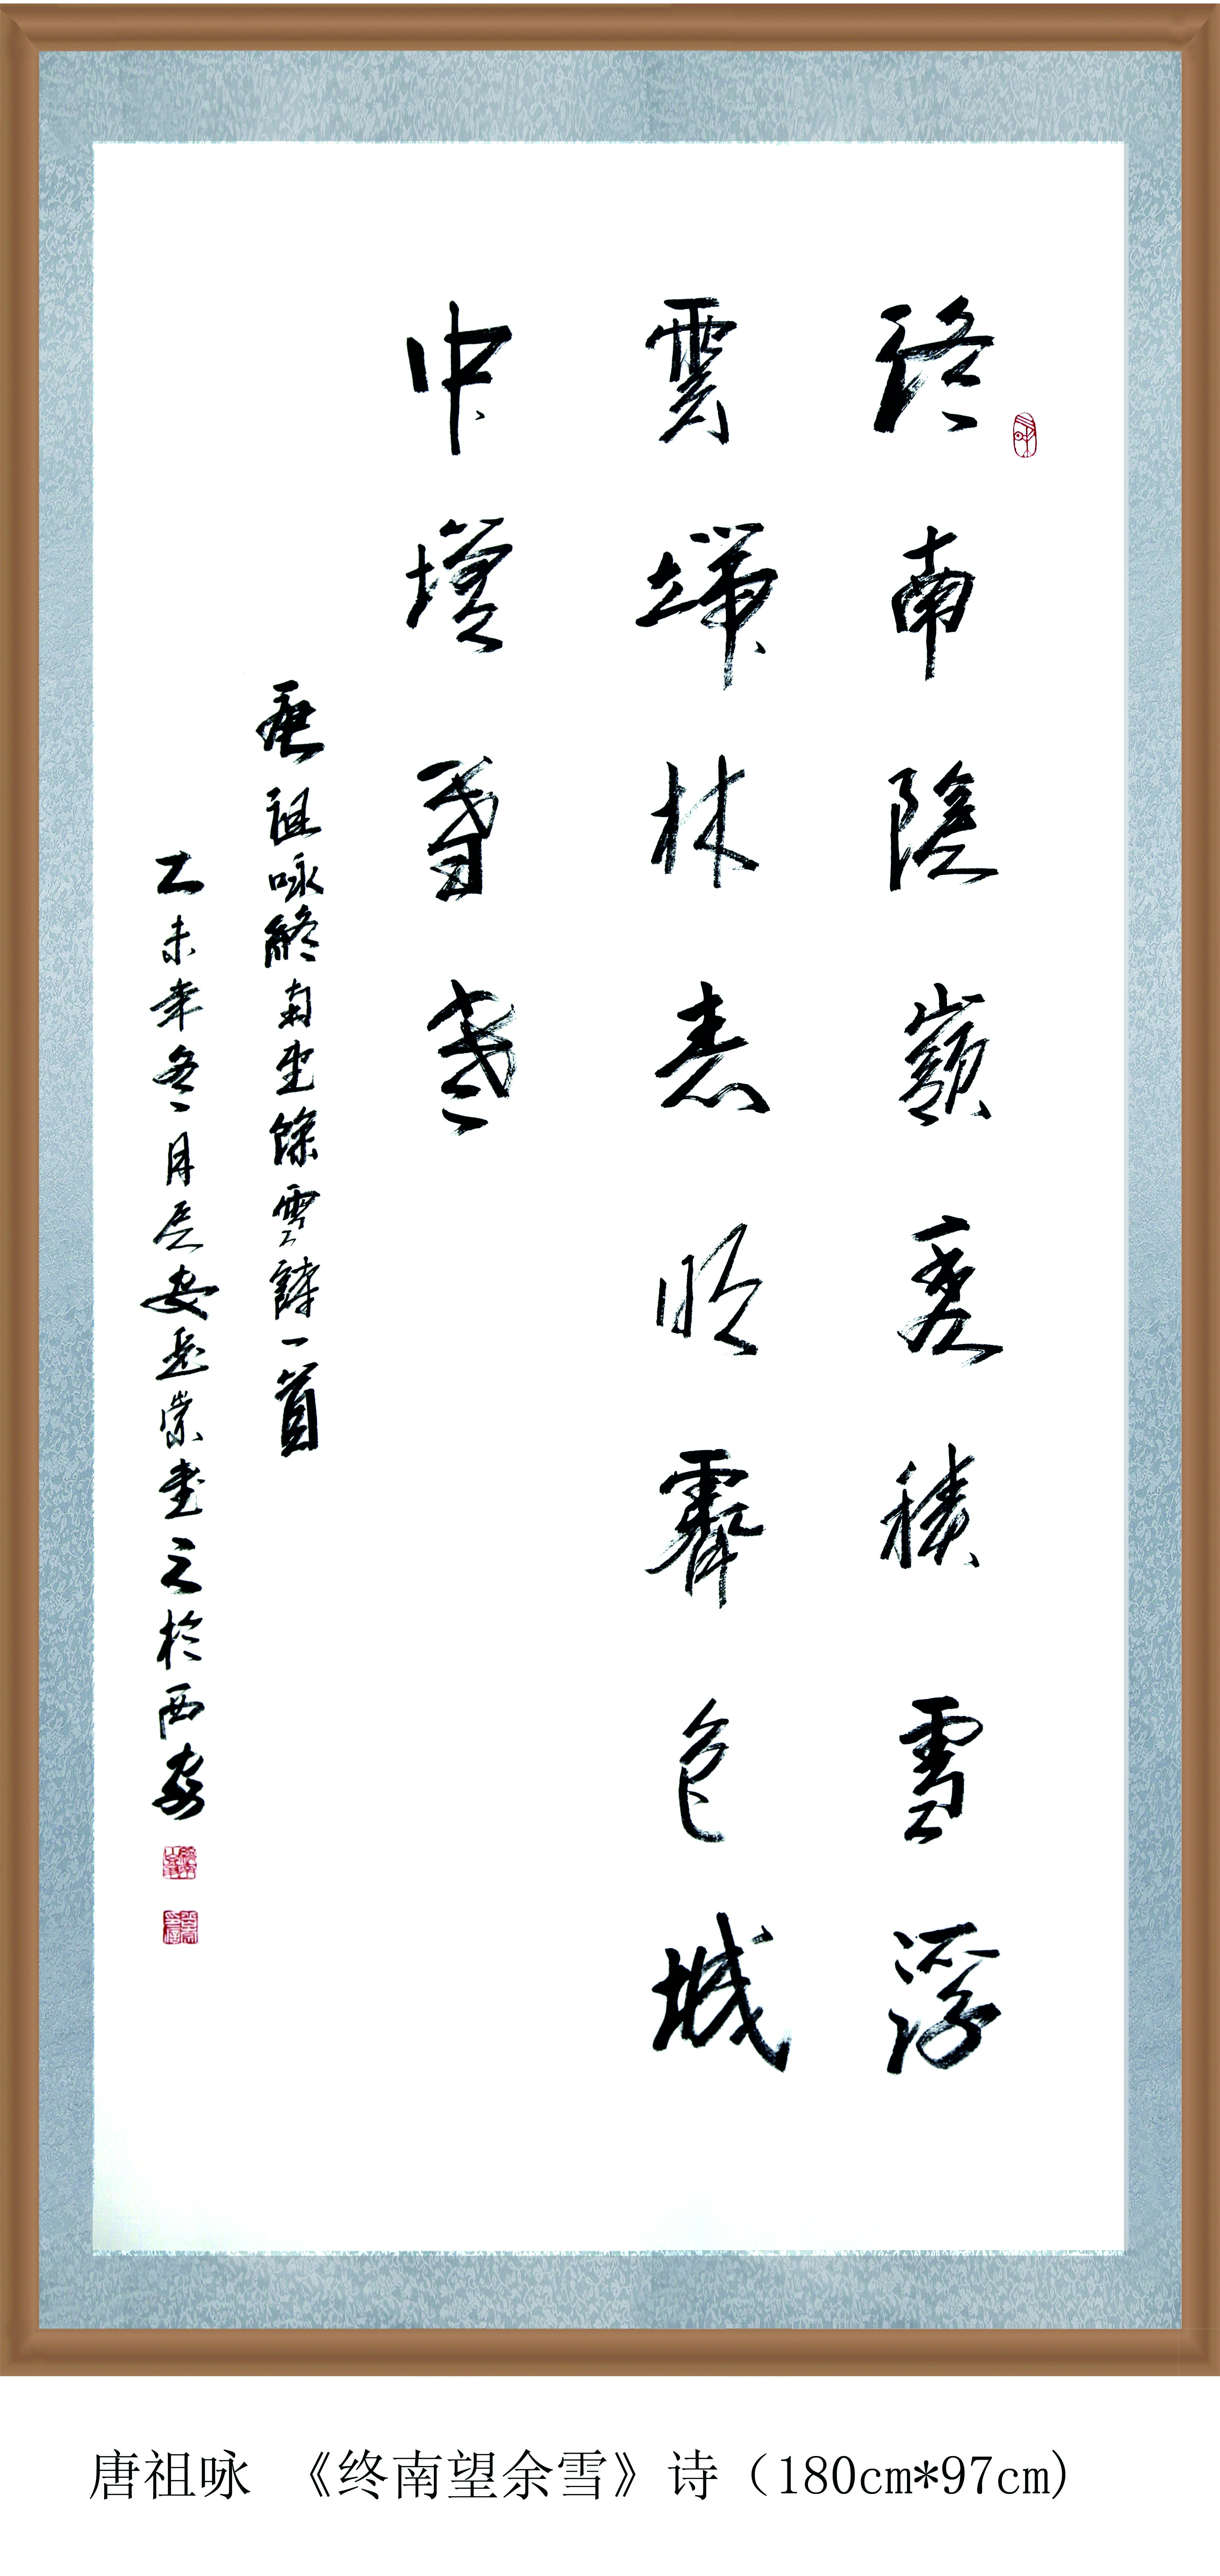 終南陰嶺秀積雪浮
雲端林表明霽色城
中增暮寒
唐祖咏終南望餘雪詩一首
乙未年冬月長安岳崇書之於西安
唐祖咏 《终南望余雪》诗（180cm*97cm）